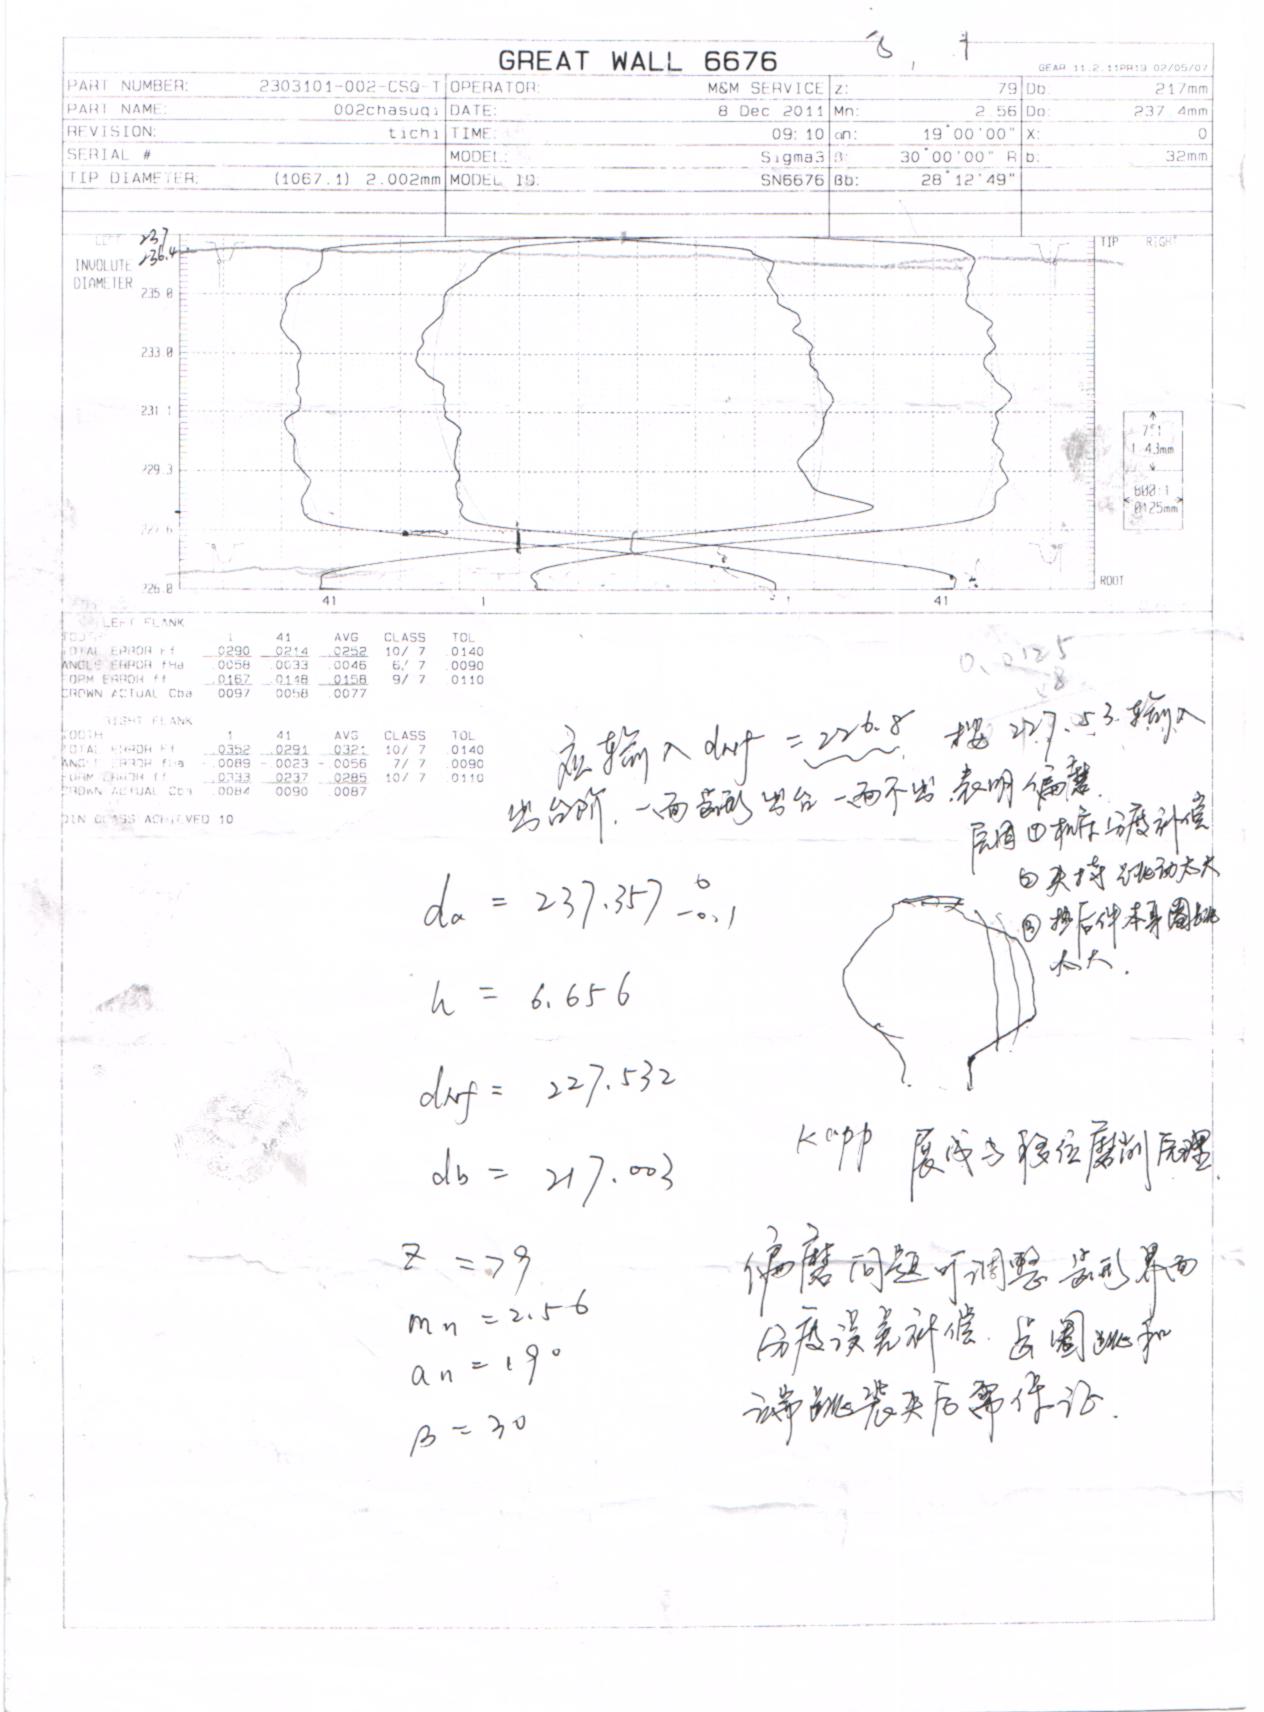 GREAT WALL 6676
GEAR 11.2.11PR19 02/05/07
PART NUMBER: 2303101-002-CSQ-T OPERATOR: M&M SERVICE Z: 79 Db: 217mm
PART NAME: 002chasuqi DATE: 8 Dec 2011 Mn: 2.56 Do: 237.4mm
REVISION: tichi TIME: 09:10 αn: 19°00'00" X: 0
SERIAL # MODEL: Sigma3 β: 30°00'00" R b: 32mm
TIP DIAMETER: (1067.1) 2.002mm MODEL ID: SN6676 βb: 28°12'49"
LEFT 237 TIP RIGHT
236.4
INVOLUTE
DIAMETER
235.0
233.0
231.1
229.3
227.6
226.0
7:1
1.43mm
800:1
.0125mm
ROOT
41 1 1 41
LEFT FLANK
TOOTH 1 41 AVG CLASS TOL
TOTAL ERROR Ff .0290 .0214 .0252 10/ 7 .0140
ANGLE ERROR fHa .0058 .0033 .0046 6/ 7 .0090
FORM ERROR ff .0167 .0148 .0158 9/ 7 .0110
CROWN ACTUAL Cba .0097 .0058 .0077
RIGHT FLANK
TOOTH 1 41 AVG CLASS TOL
TOTAL ERROR Ff .0352 .0291 .0321 10/ 7 .0140
ANGLE ERROR fHa -.0089 -.0023 -.0056 7/ 7 .0090
FORM ERROR ff .0333 .0237 .0285 10/ 7 .0110
CROWN ACTUAL Cba .0084 .0090 .0087
DIN CLASS ACHIEVED 10
0.0125
应输入 dNf = 226.8 按 227.53 输入
出台阶. 一面齿形出台一面不出 表明偏磨.
原因 ① 机床分度补偿
② 夹持跳动太大
③ 热后件本身圈跳
太大.
da = 237.357 0 -0.1
h = 6.656
dNf = 227.532
db = 217.003
Kapp 展成与移位磨削原理.
z = 79
mn = 2.56
an = 19°
β = 30
偏磨问题可调整齿形界面
分度误差补偿. 齿圈跳和
端跳装夹后需保证.